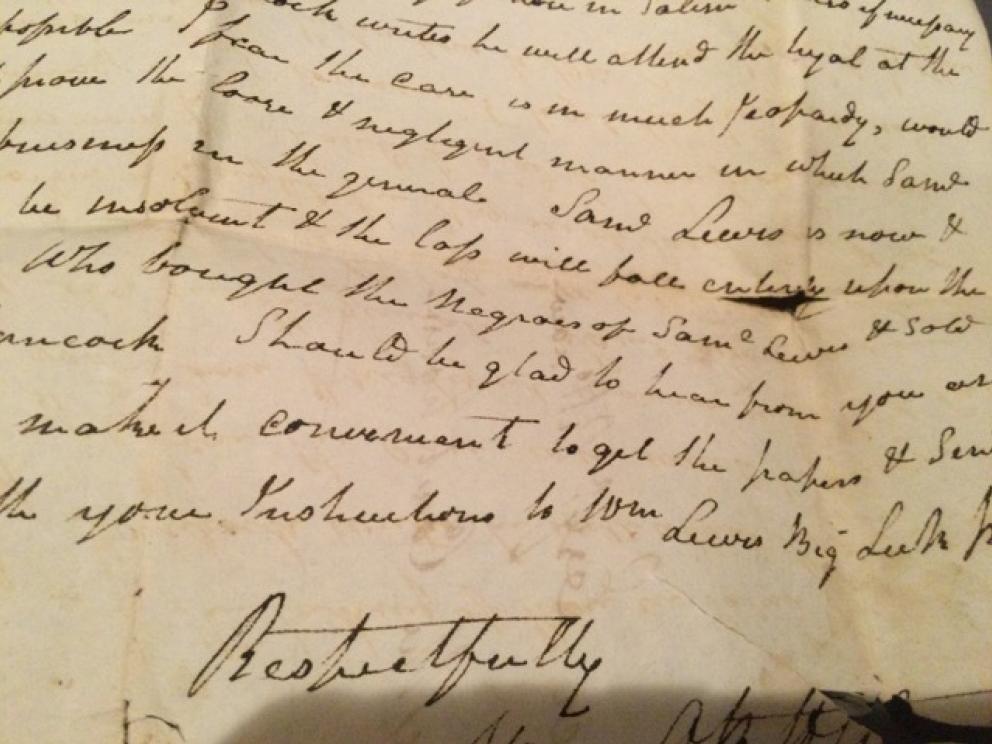 now in Salem
writes he will attend the tryal at the
possible I fear the case is in much Jeopardy, would
prove the loose & negligent manner in which Saml
business in the general Saml Lewis is now &
be insolvent & the loss will fall entirely upon the
Who bought the Negroes of Saml Lewis & Sold
ancock Should be glad to hear from you as
make it convenient to get the papers & Sen
th your Instructions to Wm Lewis Big Lick
Respectfully